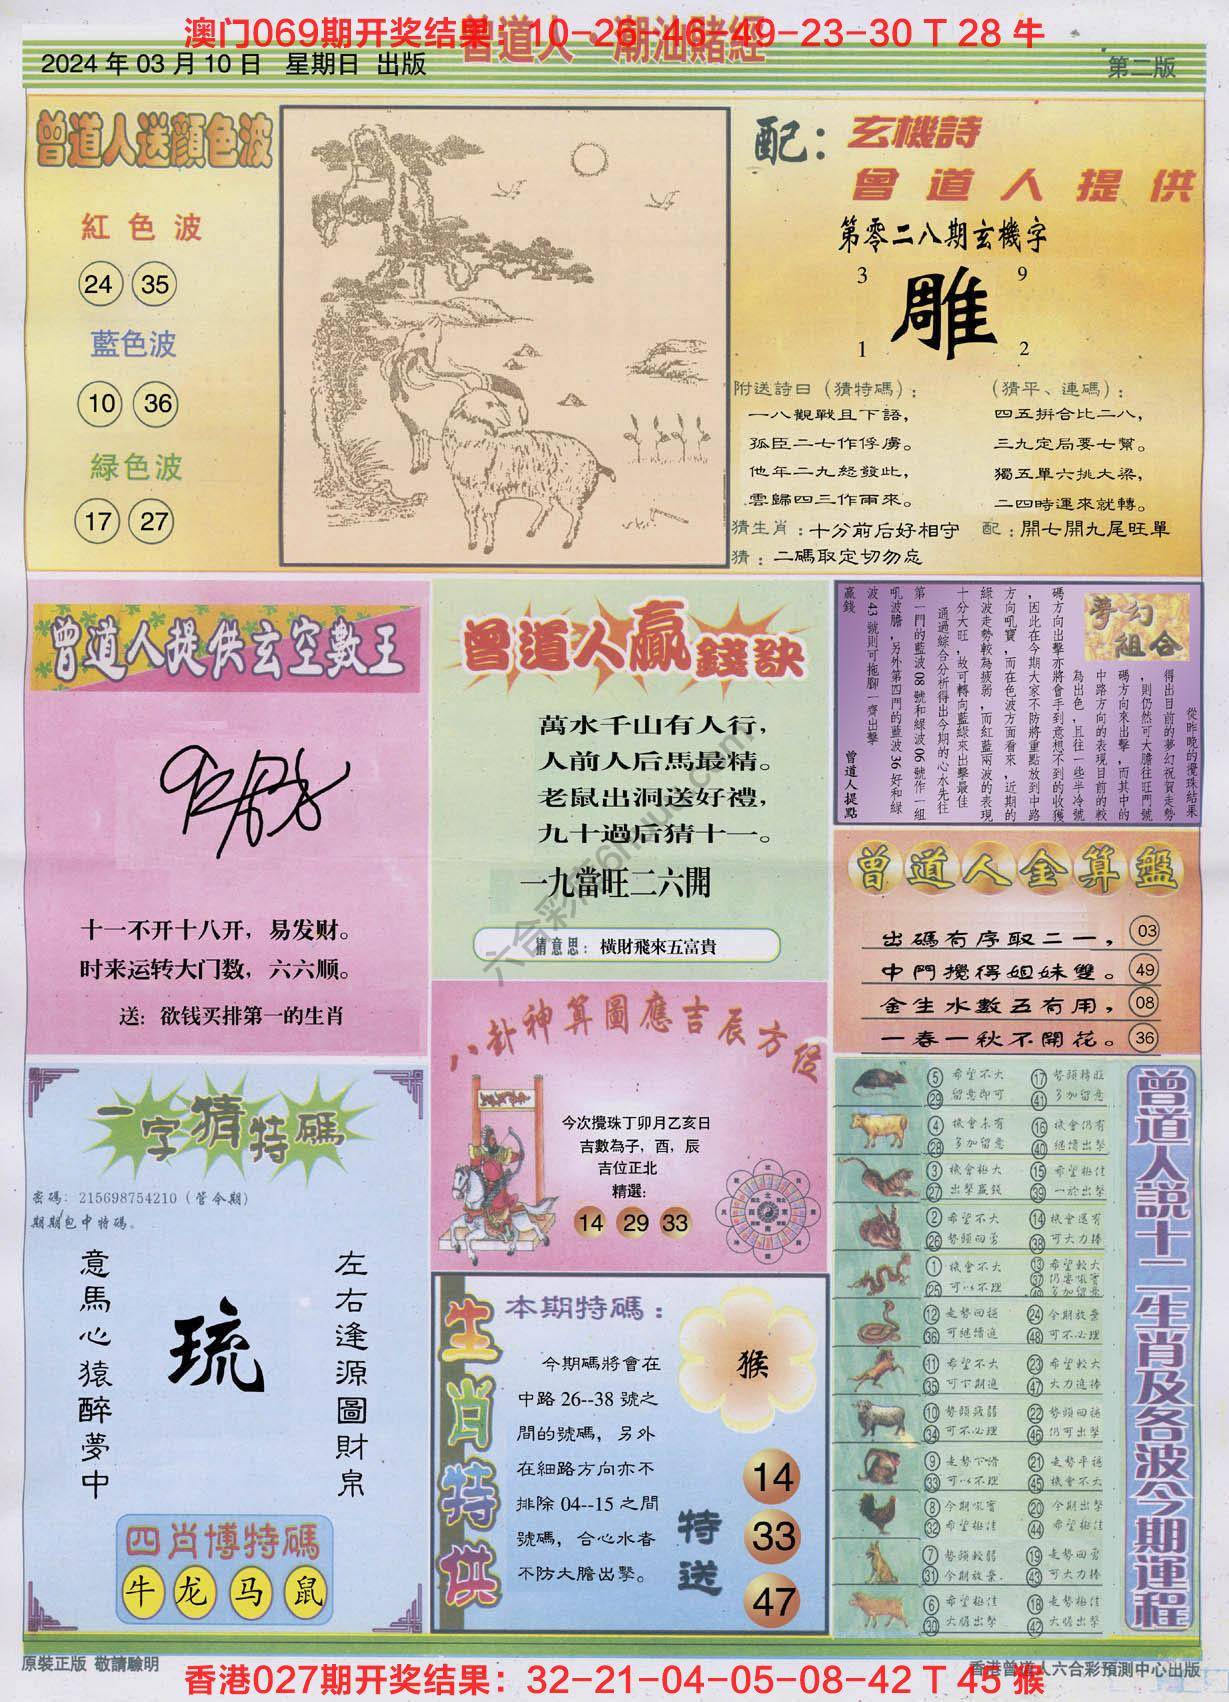 澳门069期开奖结果：10-26-46-49-23-30 T 28 牛
曾道人·潮汕賭經
2024 年 03 月 10 日 星期日 出版
第二版
曾道人送顏色波
紅色波
24 35
藍色波
10 36
緑色波
17 27
配：玄機詩
曾道人提供
第零二八期玄機字
3 9
雕
1 2
附送詩曰（猜特碼）：
一八觀戰且下語，
孤臣二七作俘虜。
他年二九怒發此，
雲歸四三作雨來。
（猜平、連碼）：
四五拼合比二八，
三九定局要七幫。
獨五單六挑大梁，
二四時運來就轉。
猜生肖：十分前后好相守
配：開七開九尾旺單
猜：二碼取定切勿忘
曾道人提供玄空數王
十一不开十八开，易发财。
时来运转大门数，六六顺。
送：欲钱买排第一的生肖
曾道人贏錢訣
萬水千山有人行，
人前人后馬最精。
老鼠出洞送好禮，
九十過后猜十一。
一九當旺二六開
猜意思：橫財飛來五富貴
夢幻組合
從昨晚的攪珠結果
得出目前的夢幻祝賀走勢
，則仍然可大膽往旺門號
碼方向來出擊，而其中的
中路方向的表現目前的較
為出色，且往一些半冷號
碼方向出擊亦將會手到意想不到的收獲
，因此在今期大家不防將重點放到中路
方向吼寶，而在色波方面看來，近期的
綠波走勢較為疲弱，而紅藍兩波的表現
十分大旺，故可轉向藍綠來出擊最佳
通過綜合分析得出今期的心水先往
第一門的藍波08號和緑波06號作一組
吼波膽，另外第四門的藍波36好和緑
波43號則可拖腳一齊出擊
贏錢
曾道人提點
曾道人金算盤
出碼有序取二一， 03
中門攪得姐妹雙。 49
金生水數五有用， 08
一春一秋不開花。 36
八卦神算圖應吉辰方位
今次攪珠丁卯月乙亥日
吉數為子，酉，辰
吉位正北
精選：
14 29 33
一字猜特碼
密碼：215698754210（管今期）
期期包中特碼。
左右逢源圖財帛
琉
意馬心猿醉夢中
四肖博特碼
牛 龙 马 鼠
生肖特供
本期特碼：
今期碼將會在
中路 26--38 號之
間的號碼，另外
在細路方向亦不
排除 04--15 之間
號碼，合心水者
不防大膽出擊。
猴
特送
14
33
47
曾道人説十二生肖及各波今期運程
5 希望不大 17 勢頭轉旺
29 留意即可 41 多加留意
4 機會未有 16 機會仍有
28 多加留意 40 繼續出擊
3 機會極大 15 希望極佳
27 出擊贏錢 39 一於出擊
2 希望不大 14 機會還有
26 勢頭回勇 38 可大力捧
1 機會不大 13 希望較大
25 可以不理 37
多加留意
12 走勢回穩 24 今期放棄
36 可繼續追 48 可不必理
11 希望不大 23 希望較大
35 可下期追 47 大力追捧
10 勢頭疲弱 22 勢頭回穩
34 可不必理 46 仍可出擊
9 走勢下滑 21 走勢平穩
33 可以不理 45 機會不大
8 今期吼寶 20 今期出擊
32 希望極佳 44 希望極佳
7 勢頭較弱 19 走勢回勇
31 今期放棄. 43 可大力捧
6 希望極佳 18 走勢極佳
30 大膽出擊 42 大膽出擊
原裝正版 敬請驗明
香港曾道人六合彩預測中心出版
香港027期开奖结果：32-21-04-05-08-42 T 45 猴